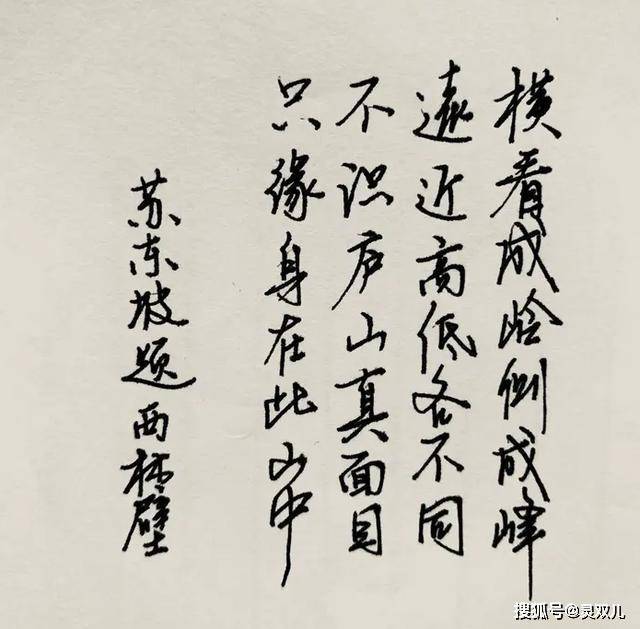 横看成岭侧成峰
遠近高低各不同
不识庐山真面目
只缘身在此山中
苏东坡题西林壁
搜狐号@灵双儿